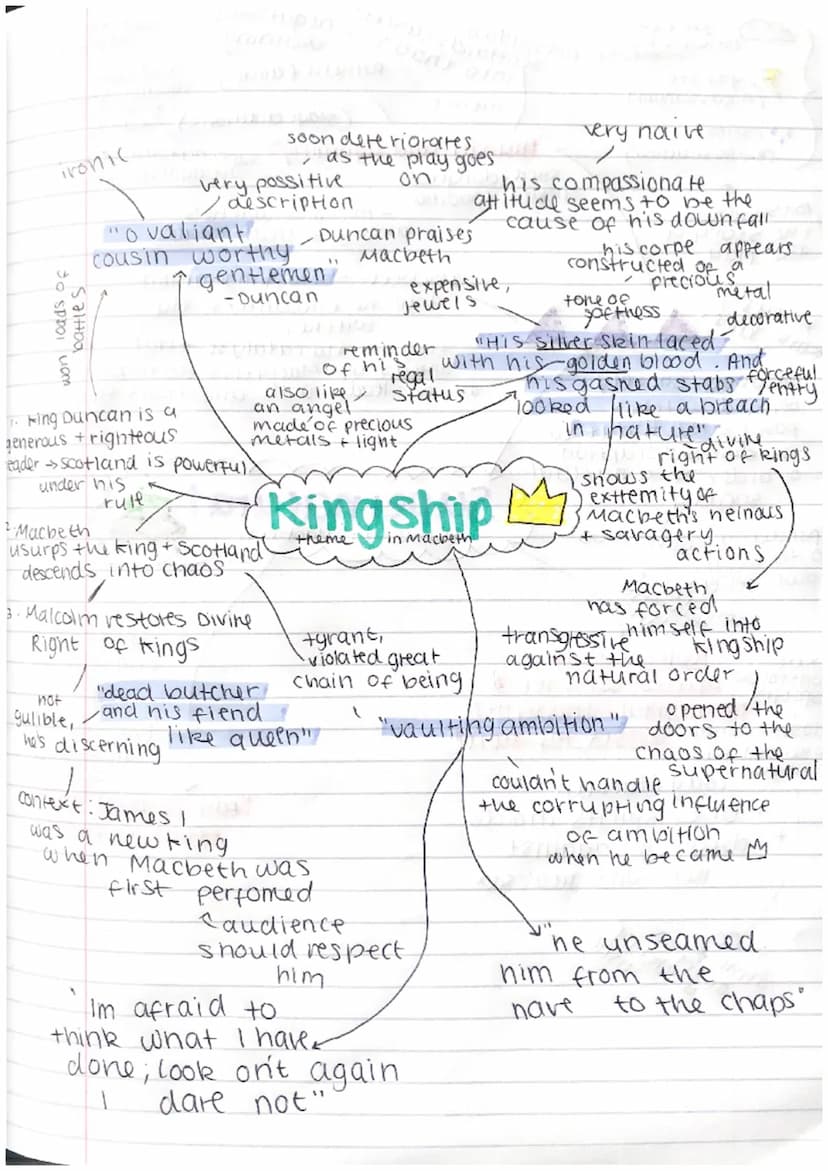 ironic
very possitive
description
soon deteriorates
as the play goes
on
"O valiant
cousin worthy
gentlemen"
-Duncan
Duncan praises
Macbeth
very naive
his compassionate
attitude seems to be the
cause of his downfall
won loads of
battles
expensive,
jewels
tone of
softness
his corpe appears
constructed of a
precious
metal
decorative
"His silver skin laced
with his golden blood. And
his gashed stabs
looked like a breach
in nature"
forceful
entry
reminder
of his
regal
status
also like
an angel
made of precious
metals + light
divine
right of kings
shows the
extremity of
Macbeth's heinous
+ savagery
actions
Kingship
theme in Macbeth
1. King Duncan is a
generous + righteous
leader → Scotland is powerful
under his
rule
2. Macbeth
usurps the king + Scotland
descends into chaos
3. Malcolm restores Divine
Right of Kings
tyrant,
violated great
chain of being
Macbeth
has forced
himself into
kingship
transgressive
against the
natural order
opened the
doors to the
chaos of the
supernatural
not
gulible,
he's discerning
"dead butcher
and his fiend
like queen"
"vaulting ambition"
couldn't handle
the corrupting influence
of ambition
when he became
context: James I
was a new king
when Macbeth was
first perfomed
audience
should respect
him
"he unseamed
him from the
nave to the chaps"
'Im afraid to
think what I have
done; look on't again
I dare not"